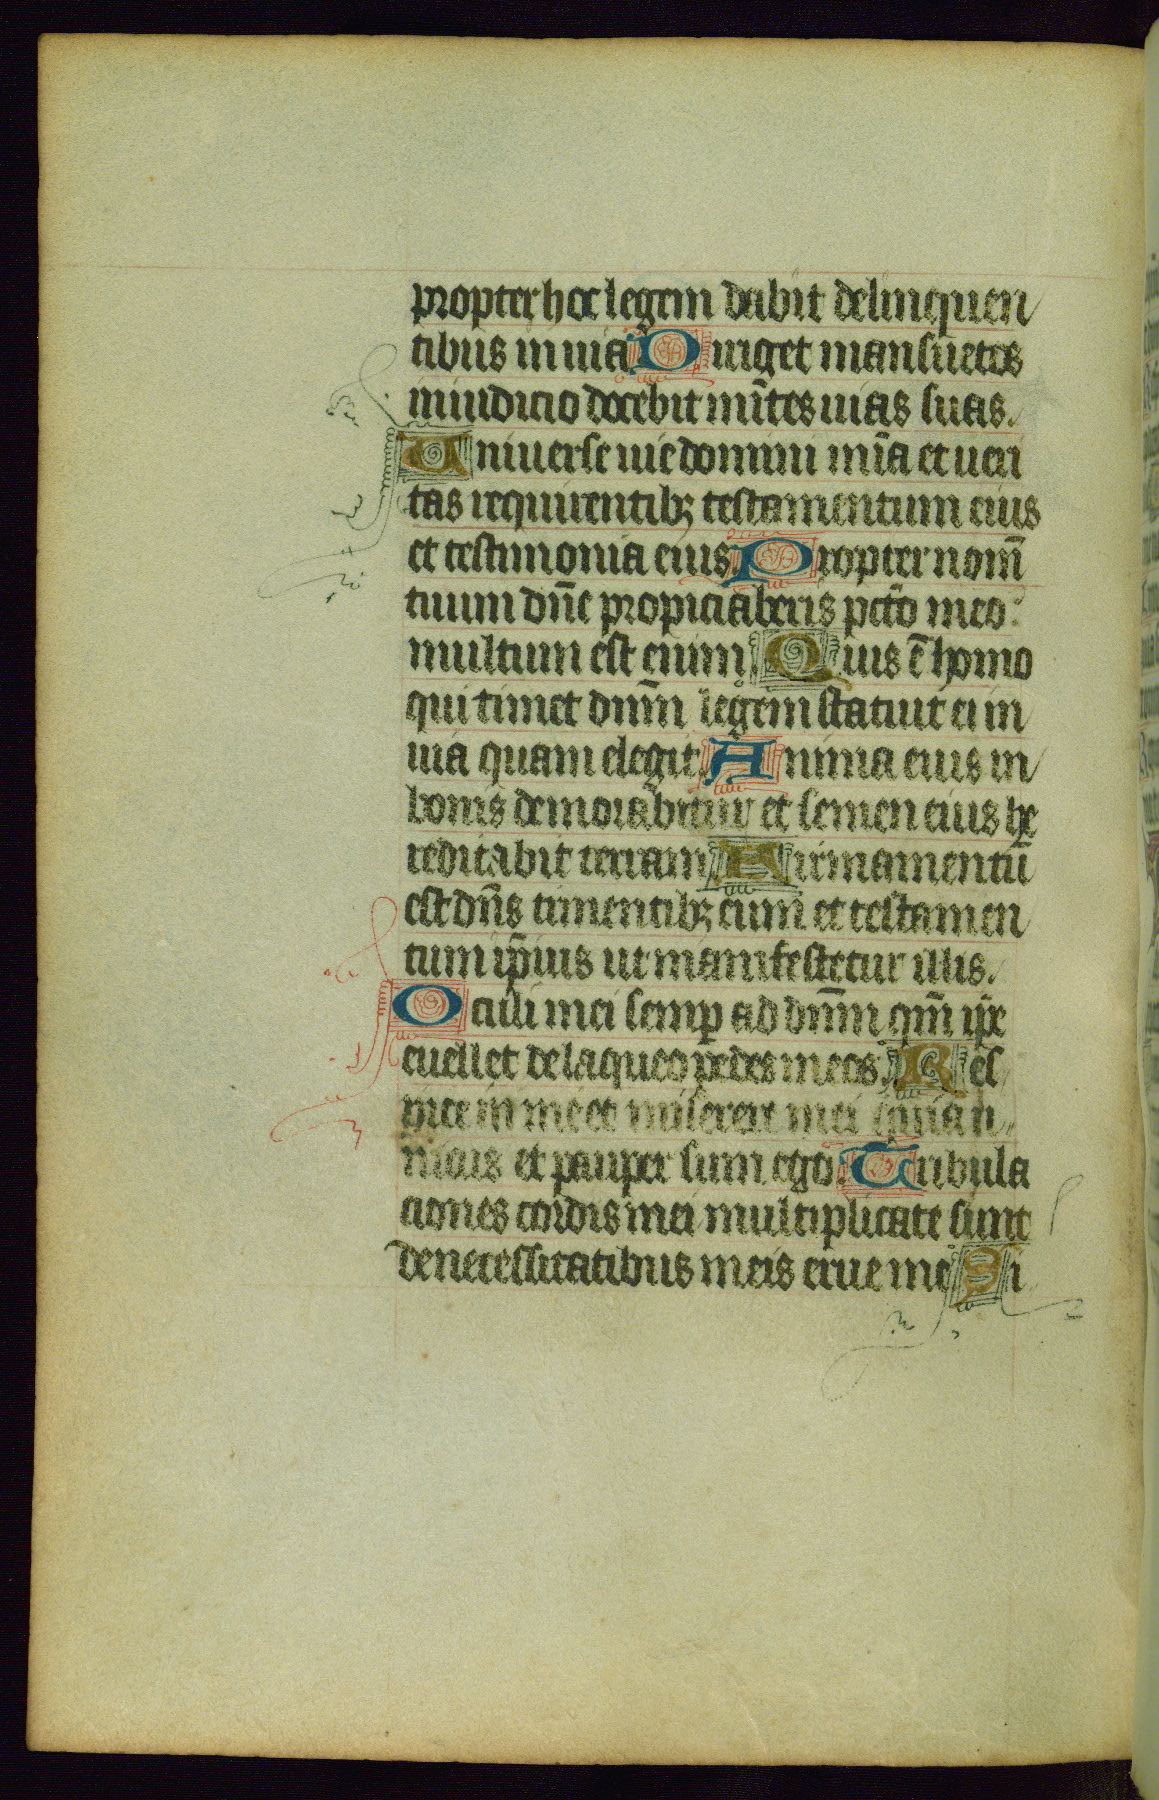 propter hoc legem dabit delinquen
tibus in uia Diriget mansuetos
in iudicio docebit mi̅tes uias suas.
Uniuerse uie domini mi̅a et ueri
tas requirentibꝫ testamentum eius
et testimonia eius Propter nom̅
tuum dn̅e propiciaberis pcto̅ meo:
multum est enim Quis e̅ homo
qui timet dnm̅ legem statuit ei in
uia quam elegit. Anima eius in
bonis demorabitur et semen eius he
reditabit terram Firmamentu̅
est dn̅s timentibꝫ eum et testamen
tum ip̅ius ut manifestetur illis.
Oculi mei semꝑ ad dnm̅ qm̅ ip̅e
euellet de laqueo pedes meos. Res
pice in me et miserere mei quia u
nicus et pauper sum ego. Tribula
ciones cordis mei multiplicate sunt
de necessitatibus meis erue me Ui